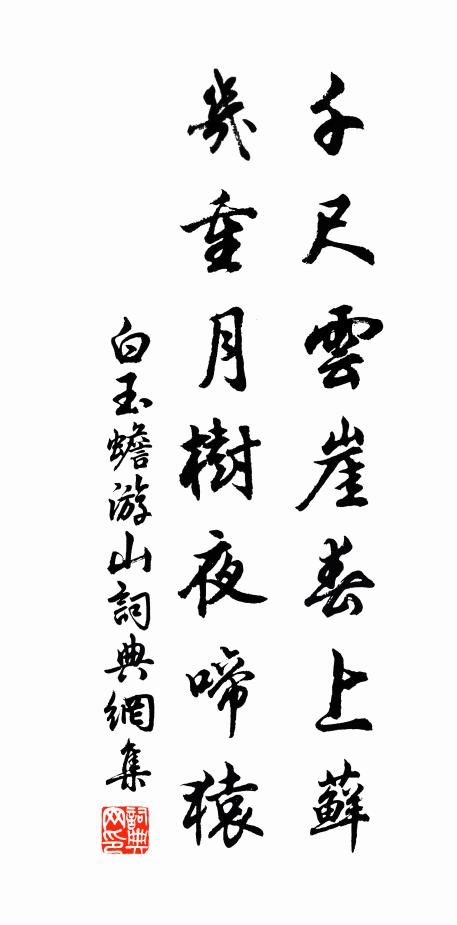 千尺雲崖春上蘚
幾重月樹夜啼猿
白玉蟾游山詞典網集
詞典網印